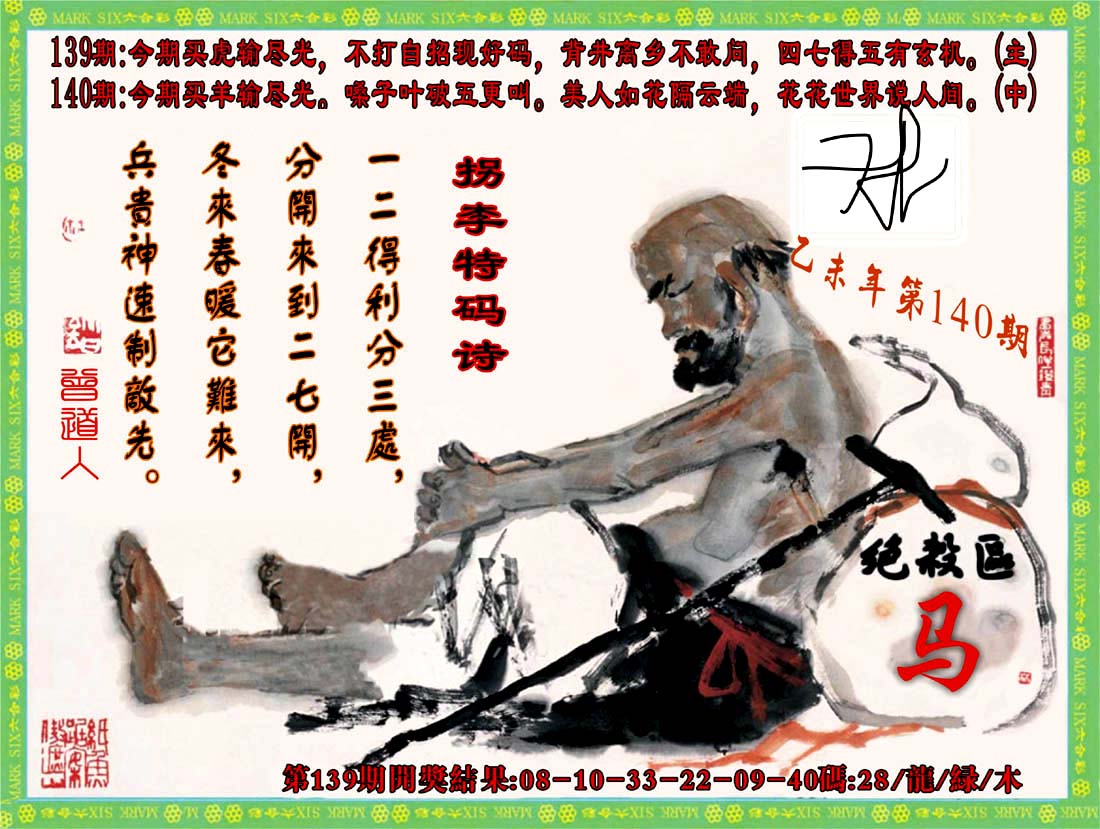 139期:今期买虎输尽光，不打自招现好码，背井离乡不敢问，四七得五有玄机。(主)
140期:今期买羊输尽光。嗓子叶破五更叫。美人如花隔云端，花花世界说人间。(中)
拐李特码诗
一二得利分三處，
分開來到二七開，
冬來春暖它難來，
兵貴神速制敵先。
乙未年第140期
曾道人
绝殺區
马
第139期開獎結果:08-10-33-22-09-40碼:28/龍/緑/木
MARK SIX六合彩